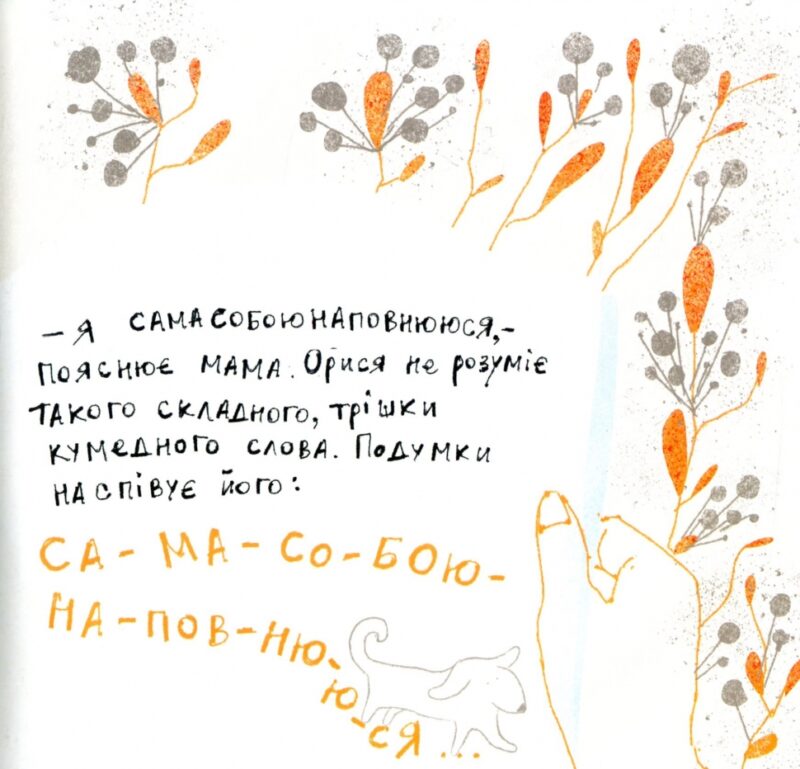 – Я САМАСОБОЮНАПОВНЮЮСЯ,-
ПОЯСНЮЄ МАМА. Орися не розуміє
ТАКОГО СКЛАДНОГО, ТРІШКИ
КУМЕДНОГО СЛОВА. ПОДУМКИ
НАСПІВУЄ ЙОГО:
СА-МА-СО-БОЮ-
НА-ПОВ-НЮ-
Ю-
СЯ...